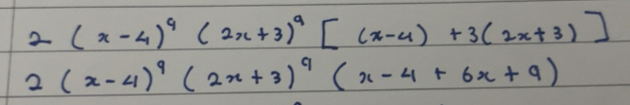 2 (x-4)⁹ (2x+3)⁹ [ (x-4) + 3(2x+3) ]
2 (x-4)⁹ (2x+3)⁹ (x-4 + 6x + 9)